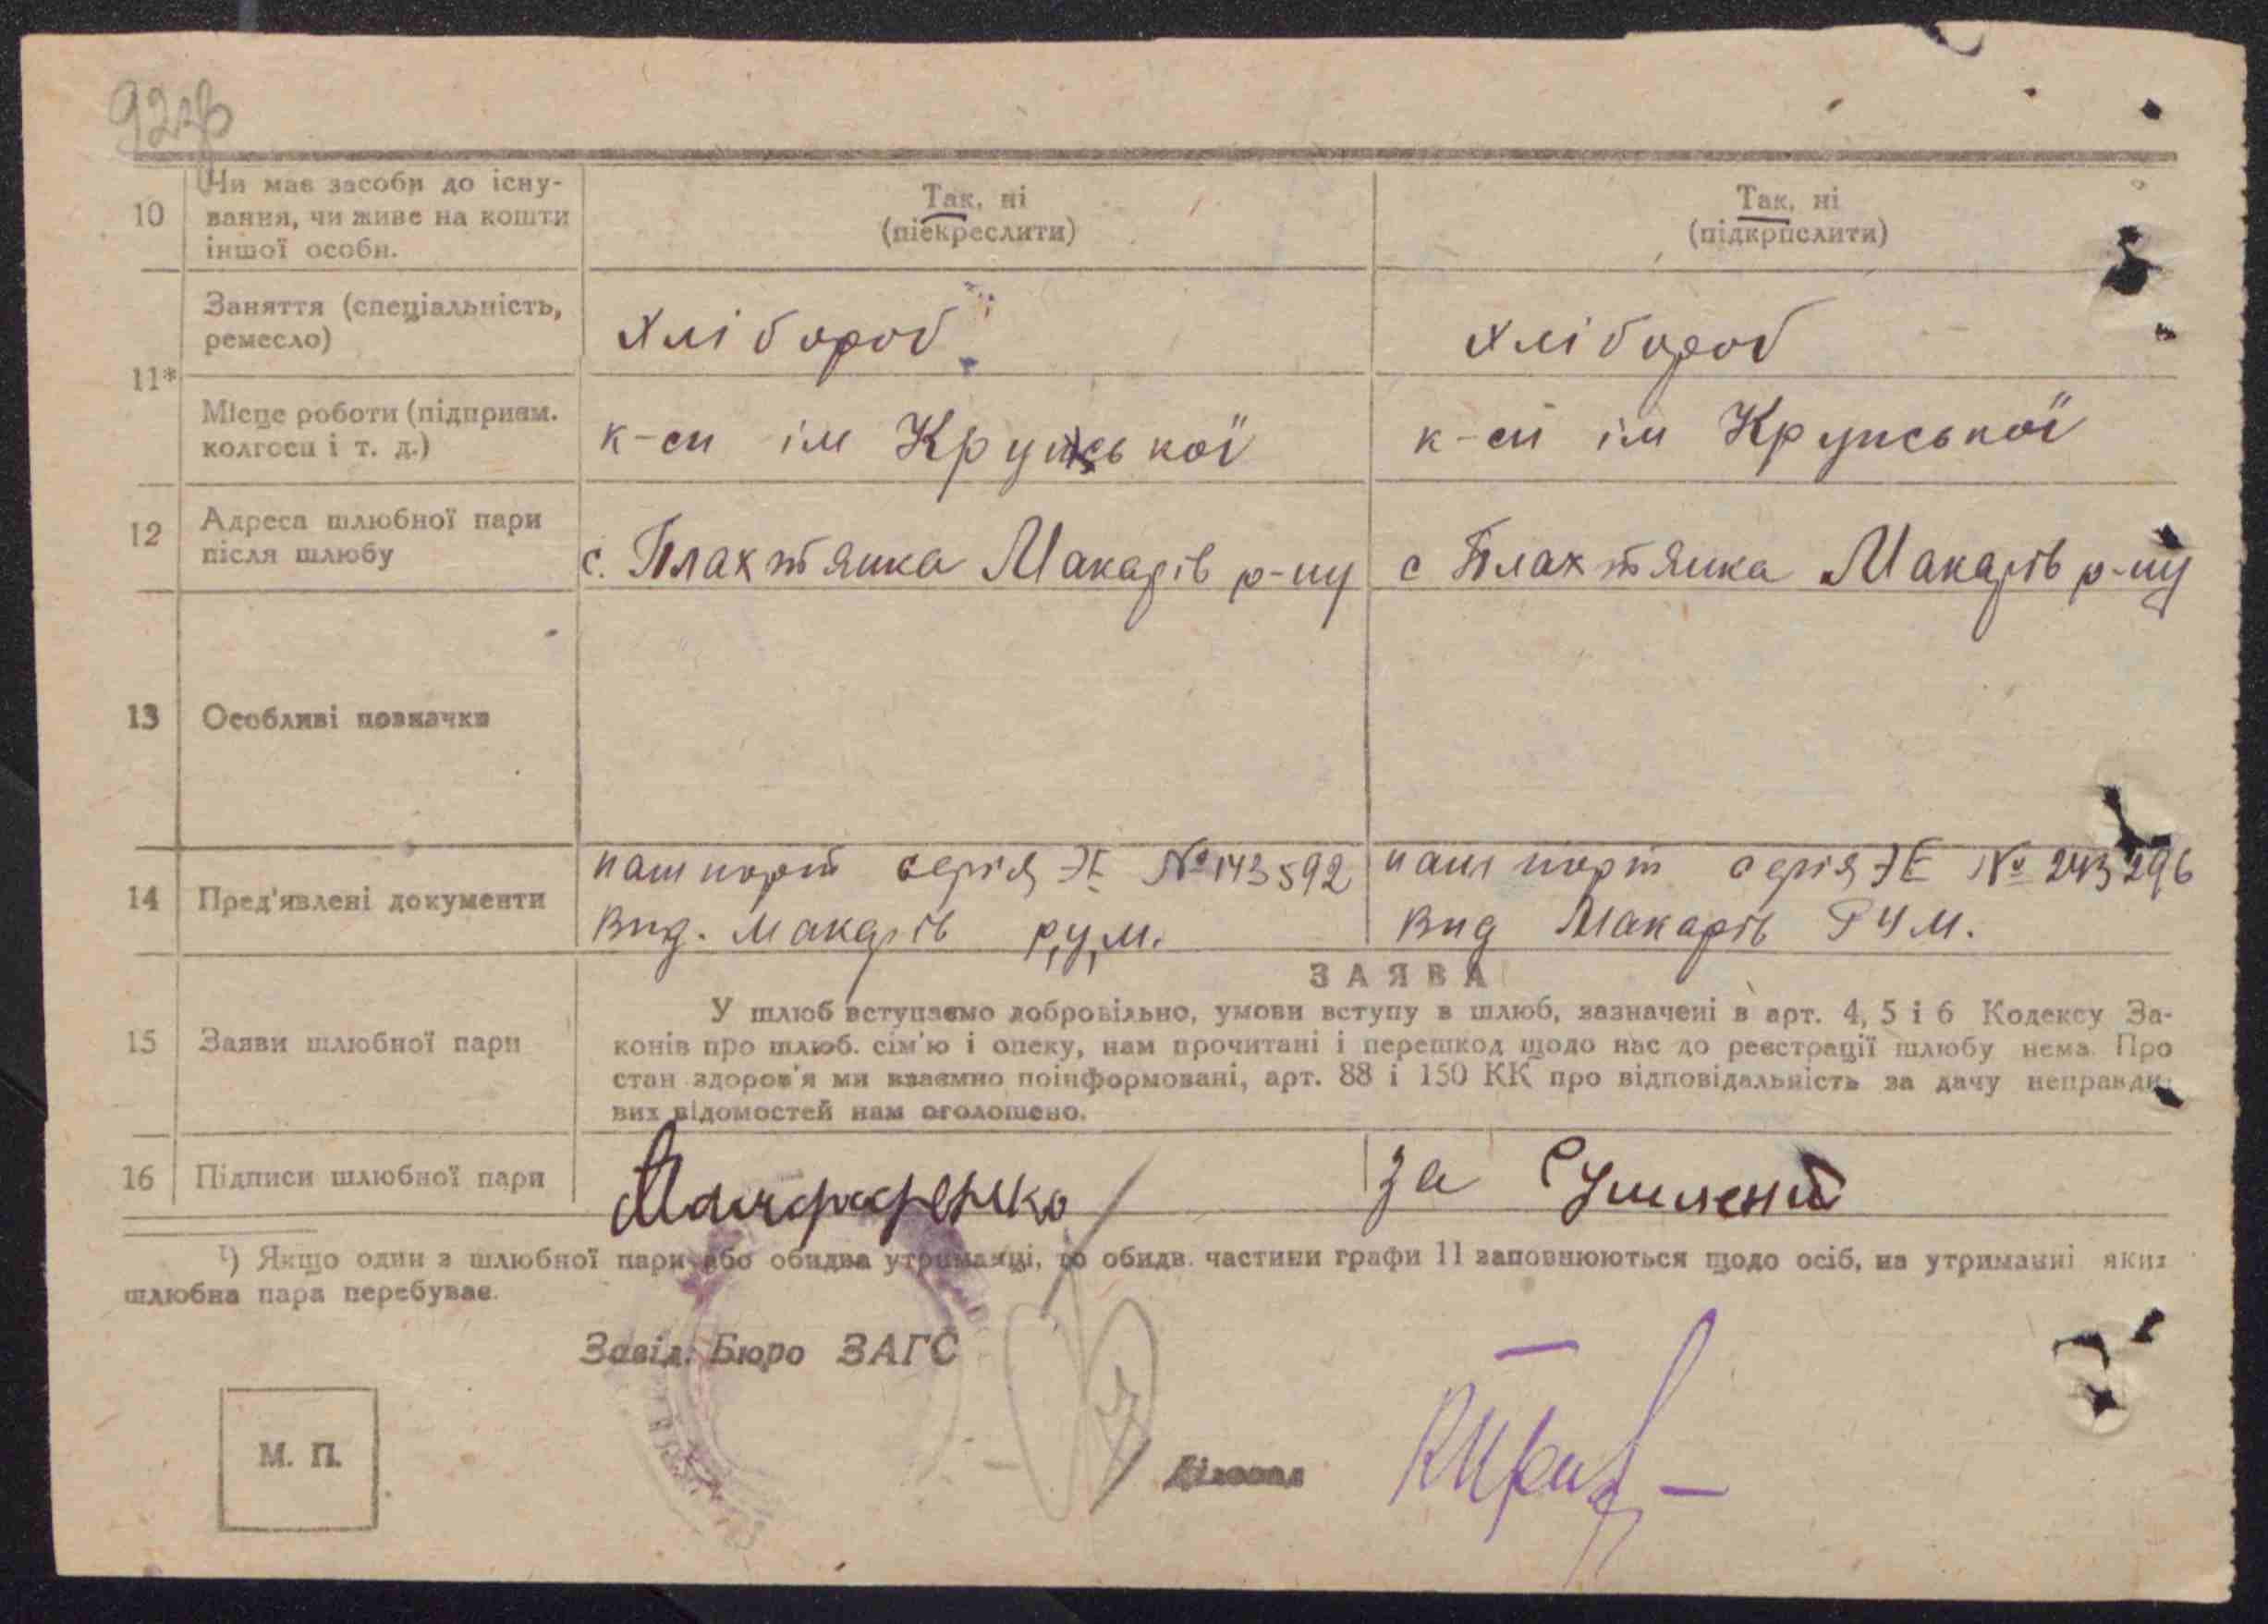 92
10 Чи має засоби до існу-
вання, чи живе на кошти
іншої особи.
Так, ні
(піекреслити)
Так, ні
(підкрислити)
11*
Заняття (спеціальність,
ремесло)
хлібороб
хлібороб
Місце роботи (підприєм.
колгосп і т. д.)
к-сп ім Крупської
к-сп ім Крупської
12 Адреса шлюбної пари
після шлюбу
с. Плахтянка Макарів р-ну
с Плахтянка Макарів р-ну
13 Особливі позначки
14 Пред'явлені документи
пашпорт серія ЭЕ № 143592
Вид. Макарів р,у,м.
пашпорт серія ЭЕ № 243296
Вид Макарів РУМ.
15 Заяви шлюбної пари
ЗАЯВА
У шлюб вступаємо добровільно, умови вступу в шлюб, зазначені в арт. 4, 5 і 6 Кодексу За-
конів про шлюб. сім'ю і опеку, нам прочитані і перешкод щодо нас до реєстрації шлюбу нема. Про
стан здоров'я ми взаємно поінформовані, арт. 88 і 150 КК про відповідальність за дачу неправди-
вих відомостей нам оголошено.
16 Підписи шлюбної пари
за
¹) Якщо один з шлюбної пари або обидва утриманці, то обидв. частини графи 11 заповнюються щодо осіб, на утриманні яких
шлюбна пара перебуває.
Завід. Бюро ЗАГС
М. П.
Діловод